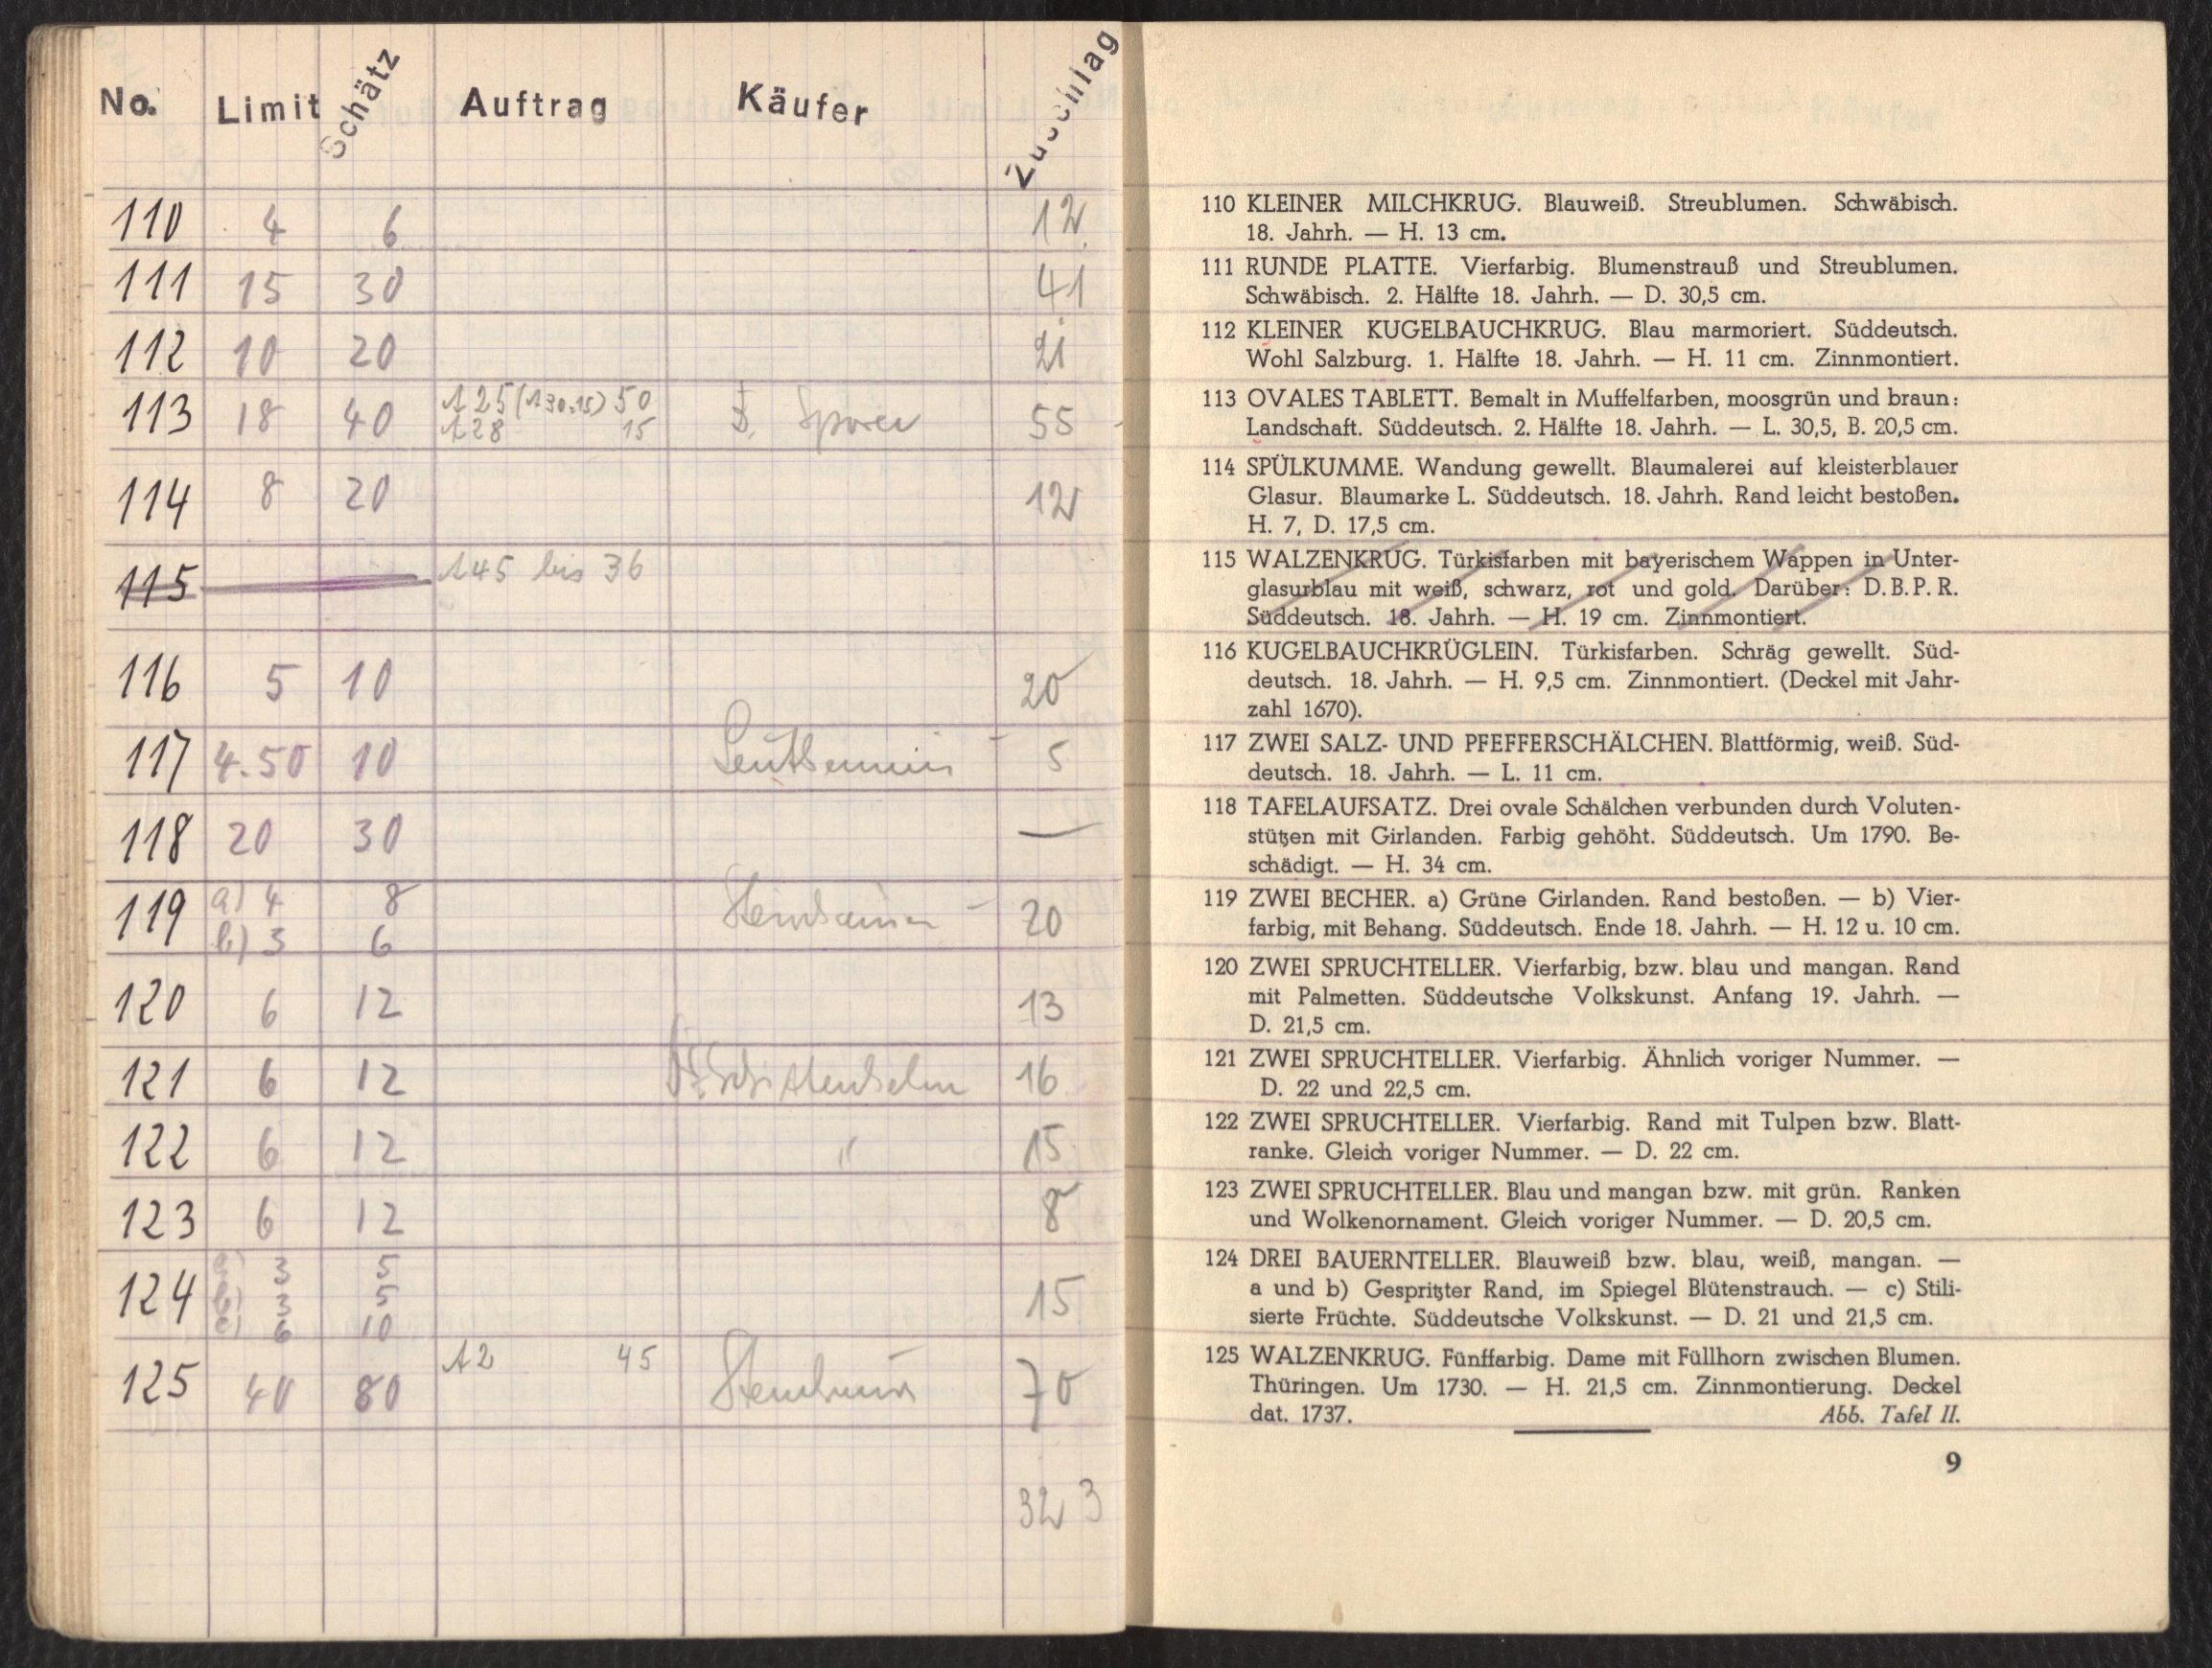 No. Limit Schätz Auftrag Käufer Zuschlag
110 4 6 12
111 15 30 41
112 10 20 21
113 18 40 125 (130.15) 50 55
128 15
114 8 20 12
115 145 bis 36
116 5 10 20
117 4.50 10 5
118 20 30 —
119 a) 4 8 20
b) 3 6
120 6 12 13
121 6 12 16
122 6 12 " 15
123 6 12 8
124 a) 3 5 15
b) 3 5
c) 6 10
125 40 80 12 45 70
323
110 KLEINER MILCHKRUG. Blauweiß. Streublumen. Schwäbisch.
18. Jahrh. — H. 13 cm.
111 RUNDE PLATTE. Vierfarbig. Blumenstrauß und Streublumen.
Schwäbisch. 2. Hälfte 18. Jahrh. — D. 30,5 cm.
112 KLEINER KUGELBAUCHKRUG. Blau marmoriert. Süddeutsch.
Wohl Salzburg. 1. Hälfte 18. Jahrh. — H. 11 cm. Zinnmontiert.
113 OVALES TABLETT. Bemalt in Muffelfarben, moosgrün und braun:
Landschaft. Süddeutsch. 2. Hälfte 18. Jahrh. — L. 30,5, B. 20,5 cm.
114 SPÜLKUMME. Wandung gewellt. Blaumalerei auf kleisterblauer
Glasur. Blaumarke L. Süddeutsch. 18. Jahrh. Rand leicht bestoßen.
H. 7, D. 17,5 cm.
115 WALZENKRUG. Türkisfarben mit bayerischem Wappen in Unter-
glasurblau mit weiß, schwarz, rot und gold. Darüber: D. B. P. R.
Süddeutsch. 18. Jahrh. — H. 19 cm. Zinnmontiert.
116 KUGELBAUCHKRÜGLEIN. Türkisfarben. Schräg gewellt. Süd-
deutsch. 18. Jahrh. — H. 9,5 cm. Zinnmontiert. (Deckel mit Jahr-
zahl 1670).
117 ZWEI SALZ- UND PFEFFERSCHÄLCHEN. Blattförmig, weiß. Süd-
deutsch. 18. Jahrh. — L. 11 cm.
118 TAFELAUFSATZ. Drei ovale Schälchen verbunden durch Voluten-
stützen mit Girlanden. Farbig gehöht. Süddeutsch. Um 1790. Be-
schädigt. — H. 34 cm.
119 ZWEI BECHER. a) Grüne Girlanden. Rand bestoßen. — b) Vier-
farbig, mit Behang. Süddeutsch. Ende 18. Jahrh. — H. 12 u. 10 cm.
120 ZWEI SPRUCHTELLER. Vierfarbig, bzw. blau und mangan. Rand
mit Palmetten. Süddeutsche Volkskunst. Anfang 19. Jahrh. —
D. 21,5 cm.
121 ZWEI SPRUCHTELLER. Vierfarbig. Ähnlich voriger Nummer. —
D. 22 und 22,5 cm.
122 ZWEI SPRUCHTELLER. Vierfarbig. Rand mit Tulpen bzw. Blatt-
ranke. Gleich voriger Nummer. — D. 22 cm.
123 ZWEI SPRUCHTELLER. Blau und mangan bzw. mit grün. Ranken
und Wolkenornament. Gleich voriger Nummer. — D. 20,5 cm.
124 DREI BAUERNTELLER. Blauweiß bzw. blau, weiß, mangan. —
a und b) Gespritzter Rand, im Spiegel Blütenstrauch. — c) Stili-
sierte Früchte. Süddeutsche Volkskunst. — D. 21 und 21,5 cm.
125 WALZENKRUG. Fünffarbig. Dame mit Füllhorn zwischen Blumen.
Thüringen. Um 1730. — H. 21,5 cm. Zinnmontierung. Deckel
dat. 1737. Abb. Tafel II.
9